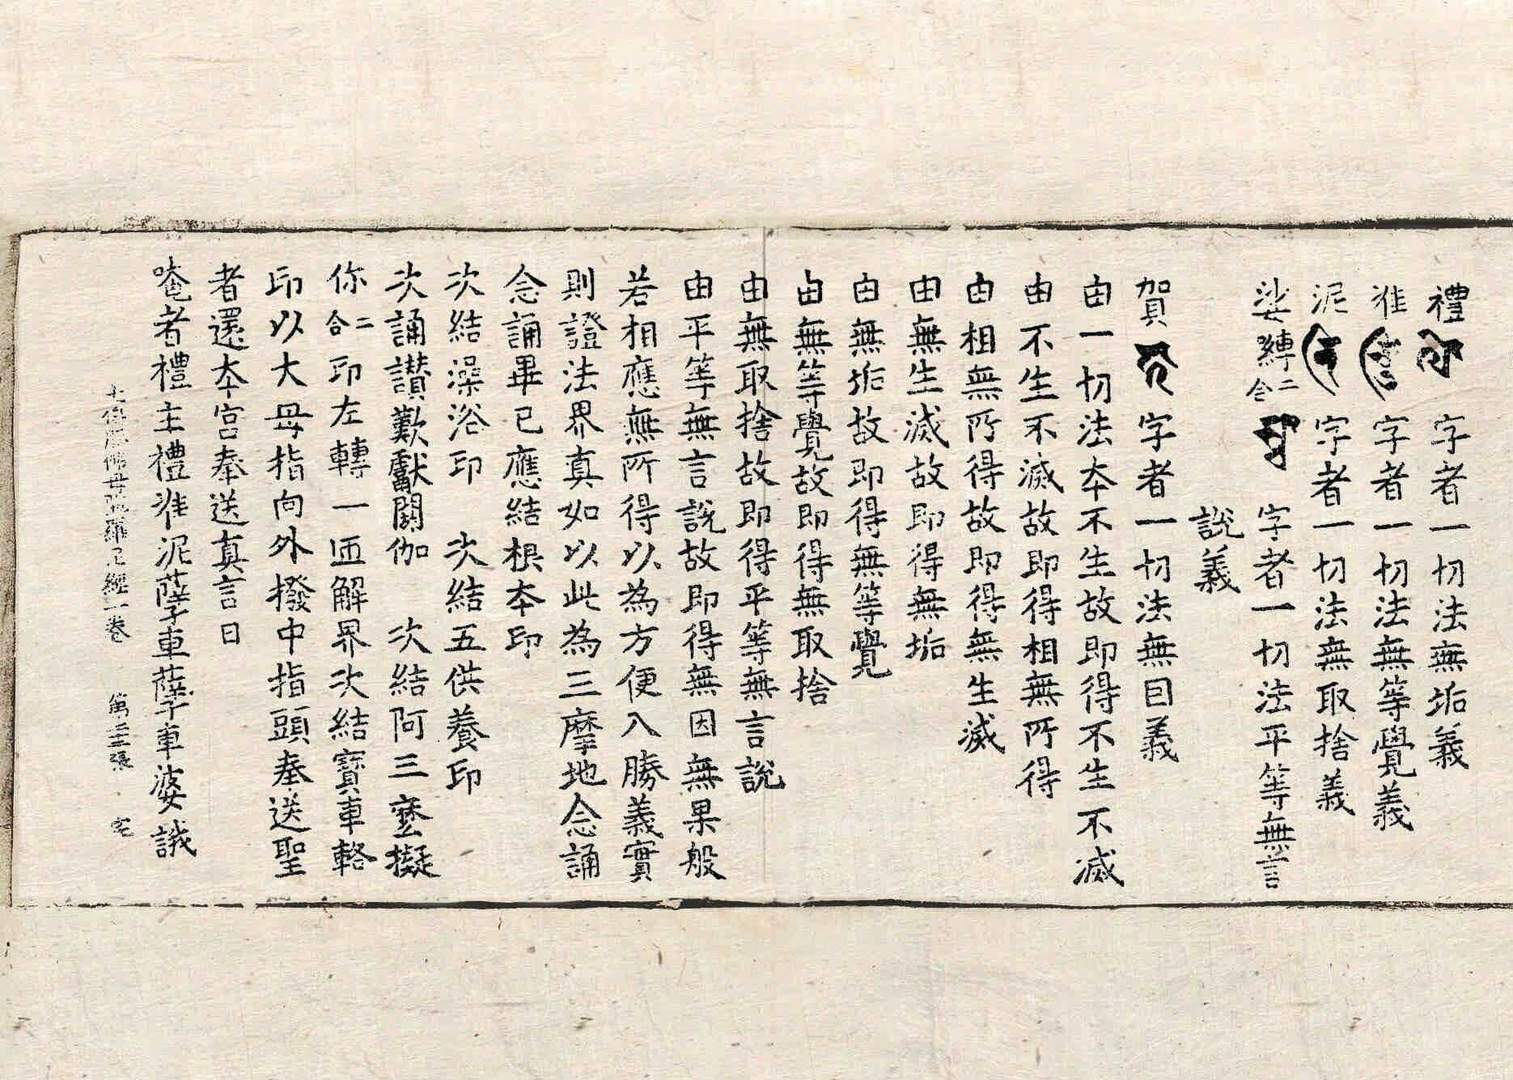 禮 字者一切法無垢義
准 字者一切法無等覺義
泥 字者一切法無取捨義
娑縛二合 字者一切法平等無言
說義
賀 字者一切法無因義
由一切法本不生故即得不生不滅
由不生不滅故即得相無所得
由相無所得故即得無生滅
由無生滅故即得無垢
由無垢故即得無等覺
由無等覺故即得無取捨
由無取捨故即得平等無言說
由平等無言說故即得無因無果般
若相應無所得以為方便入勝義實
則證法界真如以此為三摩地念誦
念誦畢已應結根本印
次結澡浴印 次結五供養印
次誦讃歎獻閼伽 次結阿三麼擬
你二合印左轉一匝解界次結寶車輅
印以大母指向外撥中指頭奉送聖
者還本宮奉送真言曰
唵者禮主禮准泥孽車孽車婆誐
七俱胝佛母陁羅尼經一卷 第三張 宅